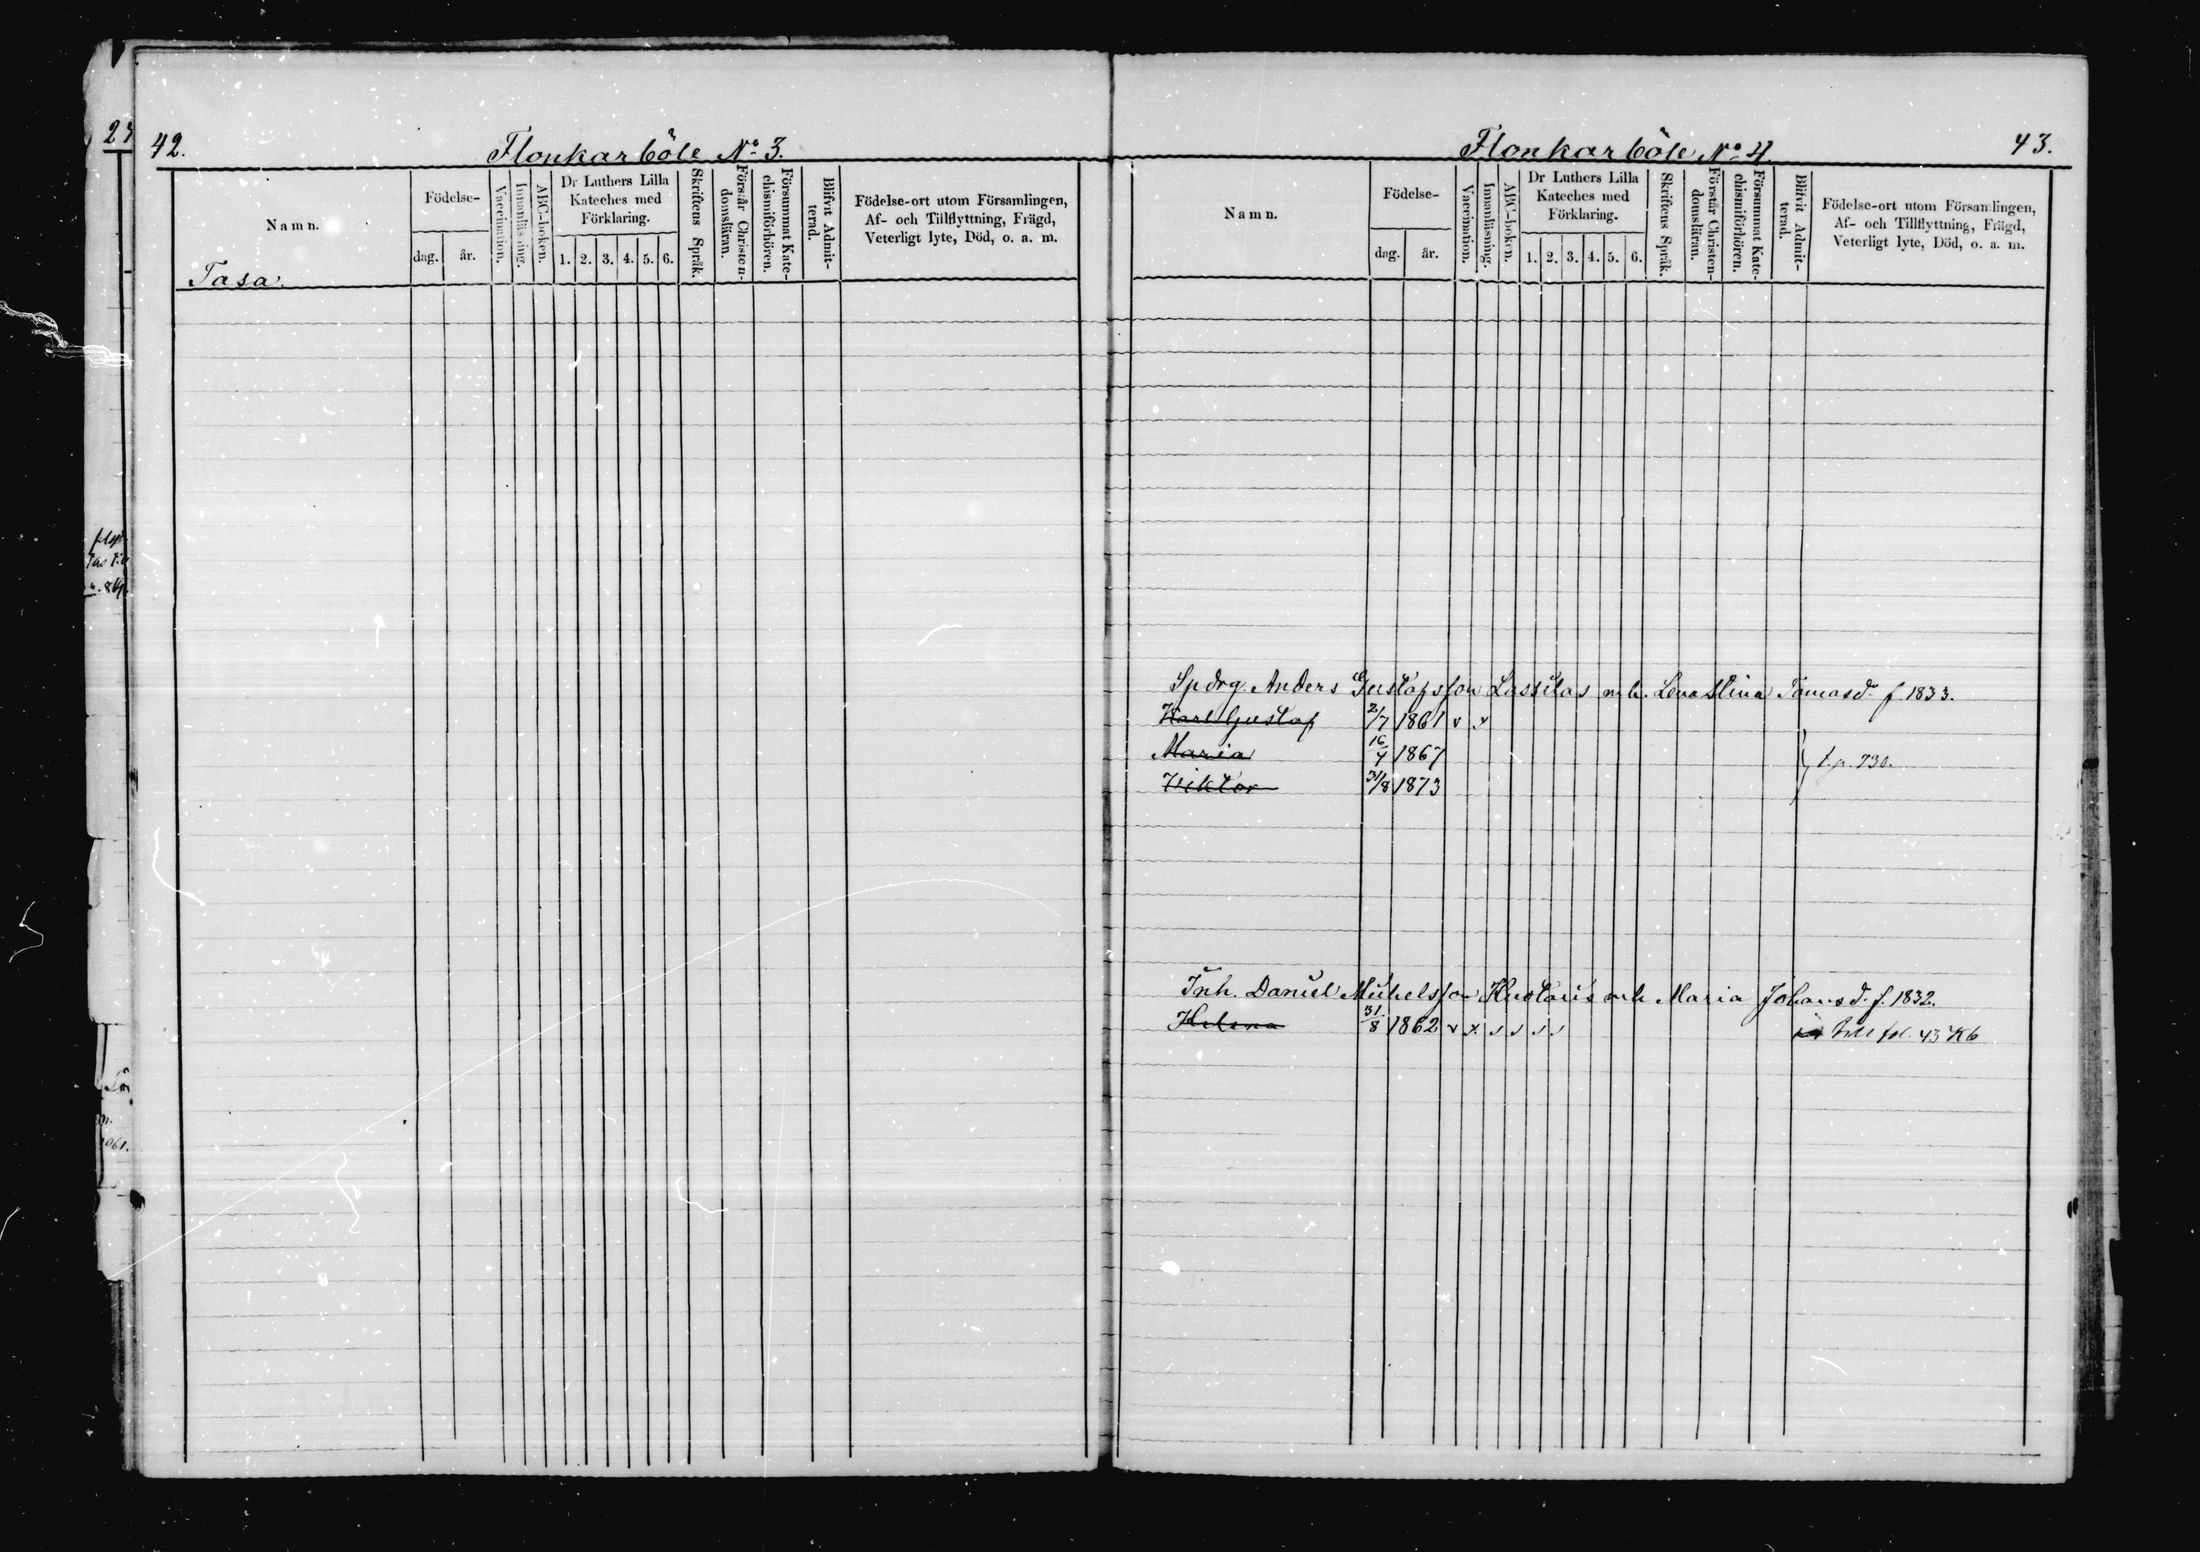 42.
Flonkarböle No 3.
Namn.
Födelse-
dag.
år.
Vaccination.
Innanläsning.
ABC-boken.
Dr Luthers Lilla
Kateches med
Förklaring.
1. 2. 3. 4. 5. 6.
Skriftens Språk.
Förstår Christen-
domsläran.
Försummat Kate-
chismiförhören.
Blifvit Admit-
terad.
Födelse-ort utom Församlingen,
Af- och Tillflyttning, Frägd,
Veterligt lyte, Död, o. a. m.
Tasa.
Flonkarböle No 4.
43.
Namn.
Födelse-
dag.
år.
Vaccination.
Innanläsning.
ABC-boken.
Dr Luthers Lilla
Kateches med
Förklaring.
1. 2. 3. 4. 5. 6.
Skriftens Språk.
Förstår Christen-
domsläran.
Försummat Kate-
chismiförhören.
Blifvit Admit-
terad.
Födelse-ort utom Församlingen,
Af- och Tillflyttning, Frägd,
Veterligt lyte, Död, o. a. m.
Spdrg. Anders Gustafsson Lassilas m h. Lena Stina Tomasd. f. 1833.
Karl Gustaf 2/7 1861 v v
Maria 16/4 1867
Viktor 31/8 1873
t. p. 730.
Inh. Daniel Michelsson m h Maria Johansd. f. 1832.
Helena 31/8 1862 v x v v v v fol. 43 Kb